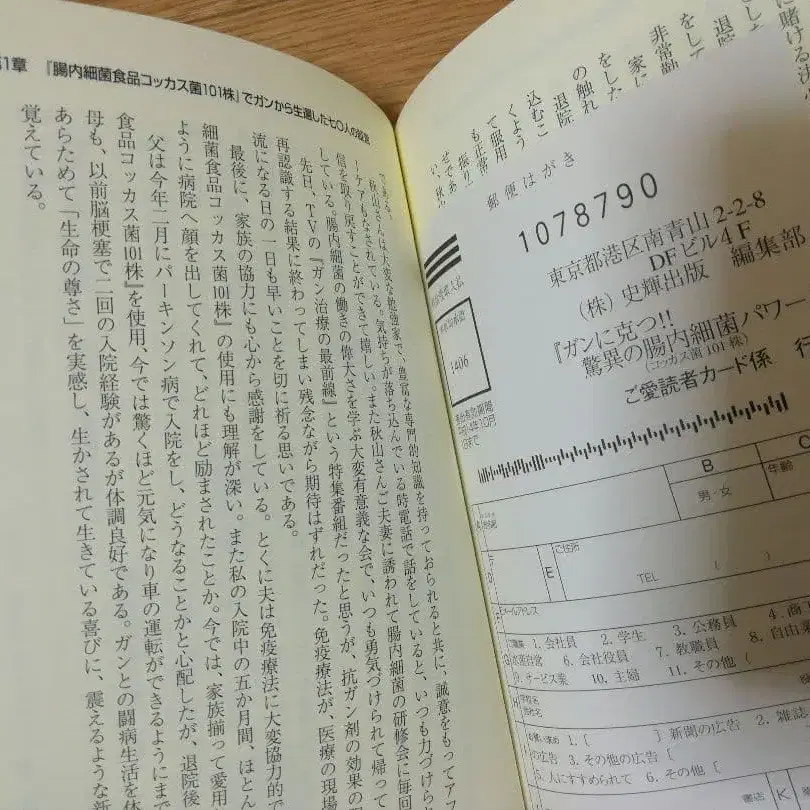 第1章 『腸内細菌食品コッカス菌101株』でガンから生還した七〇人の証言
秋山さんは大変な勉強家で、豊富な専門的知識を持っておられると共に、誠意をもってアフ
ーケアもなされている。気持ちが落ち込んでいる時電話で話をしていると、いつも力づけら
信を取り戻すことができて嬉しい。また秋山さんご夫妻に誘われて腸内細菌の研修会に毎回
している。腸内細菌の働きの偉大さを学ぶ大変有意義な会で、いつも勇気づけられて帰って
先日、TVの『ガン治療の最前線』という特集番組だったと思うが、抗ガン剤の効果の
再認識する結果に終わってしまい残念ながら期待はずれだった。免疫療法が、医療の現場
流になる日の一日も早いことを切に祈る思いである。
最後に、家族の協力にも心から感謝をしている。とくに夫は免疫療法に大変協力的で
細菌食品コッカス菌101株』の使用にも理解が深い。また私の入院中の五か月間、ほとん
ように病院へ顔を出してくれて、どれほど励まされたことか。今では、家族揃って愛用
父は今年二月にパーキンソン病で入院をし、どうなることかと心配したが、退院後
食品コッカス菌101株』を使用、今では驚くほど元気になり車の運転ができるようにまで
母も、以前脳梗塞で二回の入院経験があるが体調良好である。ガンとの闘病生活を体
あらためて「生命の尊さ」を実感し、生かされて生きている喜びに、震えるような新
覚えている。
に賭ける決
非常勤
家に
をした
の退院
の触れ
込むこ
くよう
て服用
も正常
振り
ぜであ
い、秋
郵便はがき
1078790
東京都港区南青山2-2-8
DFビル4F
(株)史輝出版 編集部
『ガンに克つ!!
驚異の腸内細菌パワー
(コッカス菌101株)
ご愛読者カード係 行
1406
B
C
男・女
年齢
E
ご住所
TEL ( )
Eメールアドレス
1. 会社員 2. 学生 3. 公務員 4. 商工
6. 会社役員 7. 教職員 8. 自由業
9. サービス業 10. 主婦 11. その他(
1. [ ]新聞の広告 2. 雑誌
の広告 3. その他の広告[
5. 人にすすめられて 6. その他(
書店 K